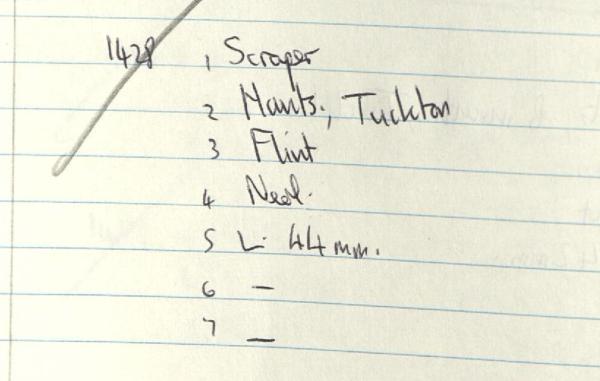 1428 1 Scraper
2 Hants., Tuckton
3 Flint
4 Neol.
5 L. 44mm.
6 —
7 —